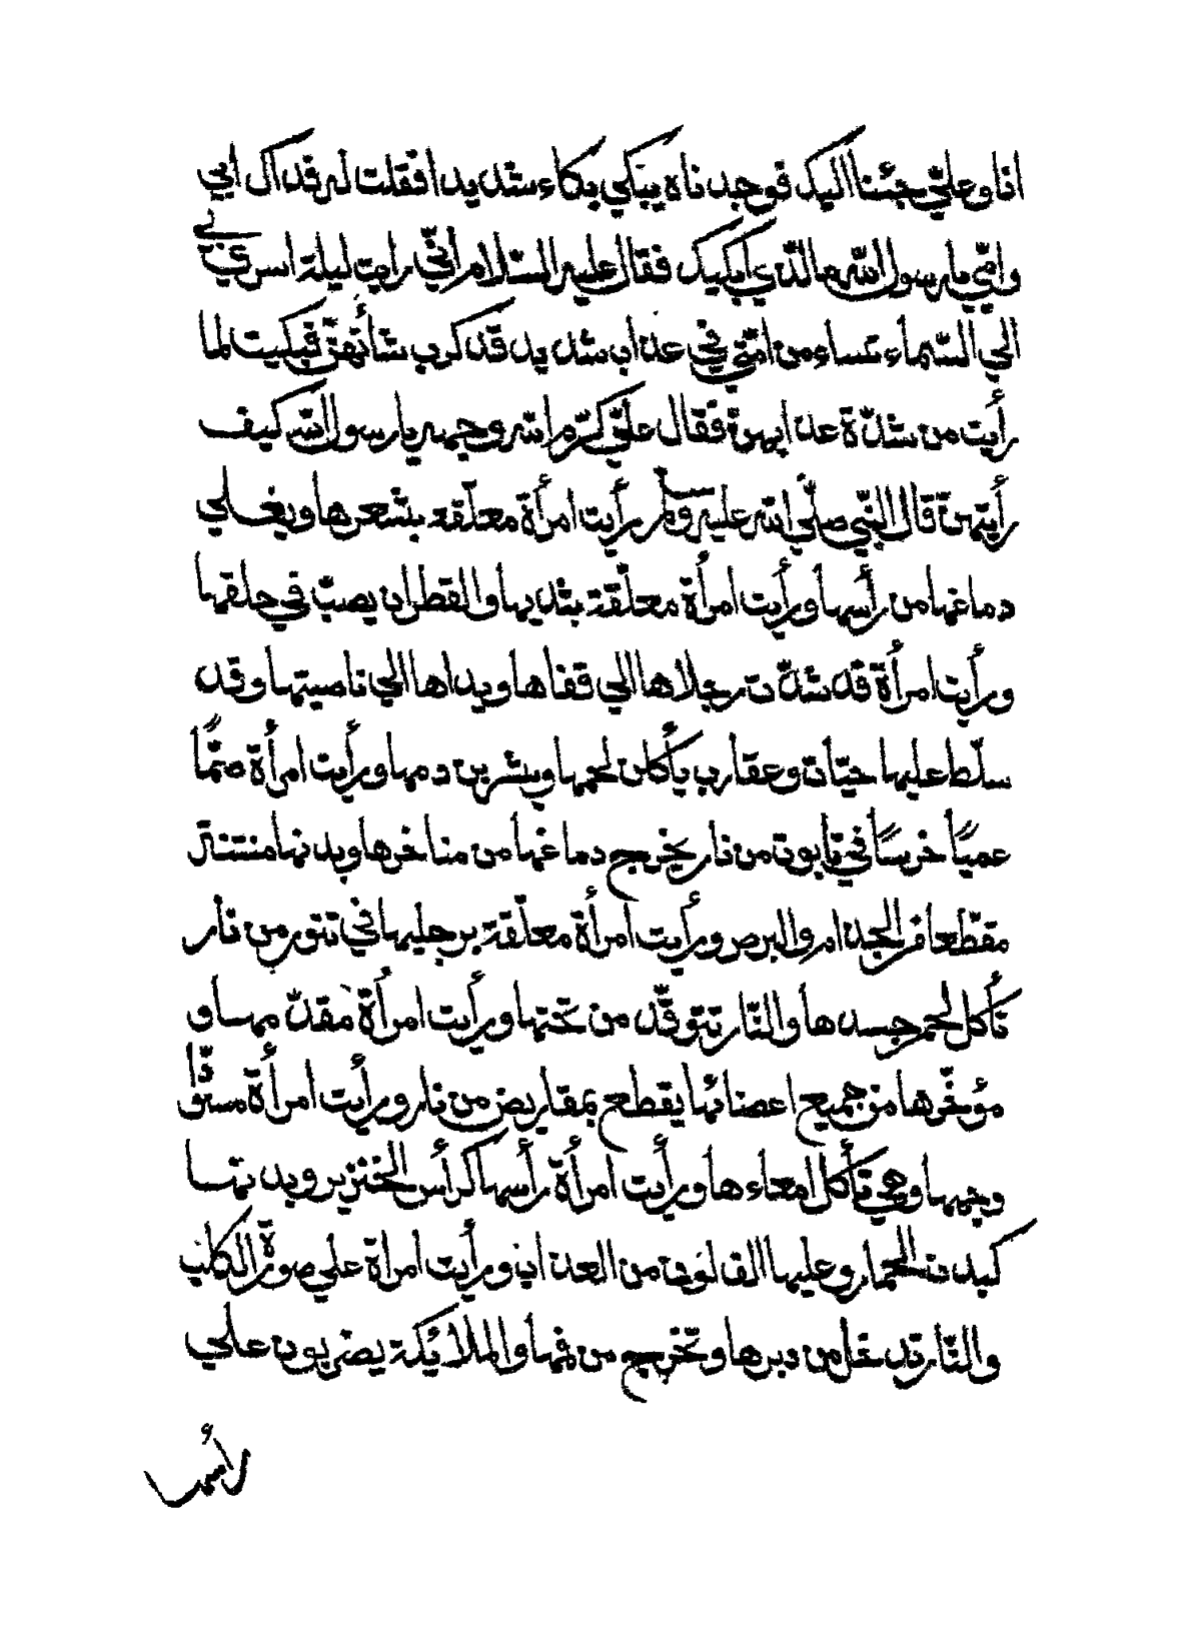 انا وعليّ جئنا اليك فوجدناه يبكي بكاء شديدا فقلت له فداك ابي
وامّي يا رسول الله ما الّذي ابكيك فقال عليه السّلام انّي رايت ليلة اسري بي
الي السّماء نساء من امّتي في عذاب شديد قد كرب شأنهنّ فبكيت لما
رأيت من شدّة عذابهنّ فقال عليّ كرّم الله وجهه يا رسول الله كيف
رأيتهنّ قال النّبيّ صلّي الله عليه وسلم رأيت امرأة معلّقة بشعرها ويغلي
دماغها من رأسها ورأيت امرأة معلّقة بثديها والقطران يصبّ في حلقها
ورأيت امرأة قد شدّت رجلاها الي قفاها ويداها الي ناصيتها وقد
سلّط عليها حيّات وعقارب يأكلن لحمها ويشربن دمها ورأيت امرأة صمًّا
عمياً خرساً في تابوت من نار يخرج دماغها من مناخرها وبدنها منتنة
مقطّعا فى الجذام والبرص ورأيت امرأة معلّقة برجليها في تنور من نار
تأكل لحم جسدها والنّار تتوقّد من تحتها ورأيت امرأة مقدّمها و
مؤخّرها من جميع اعضائها يقطع بمقاريض من نار ورأيت امرأة مسوّدًا
وجهها وهي تأكل امعاءها ورأيت امرأة رأسها كرأس الخنزير وبدنها
كبدن الحمار وعليها الف لون من العذاب ورأيت امراة علي صورة الكلب
والنّار تدخل من دبرها وتخرج من فمها والملائكة يضربون علي
رأسها